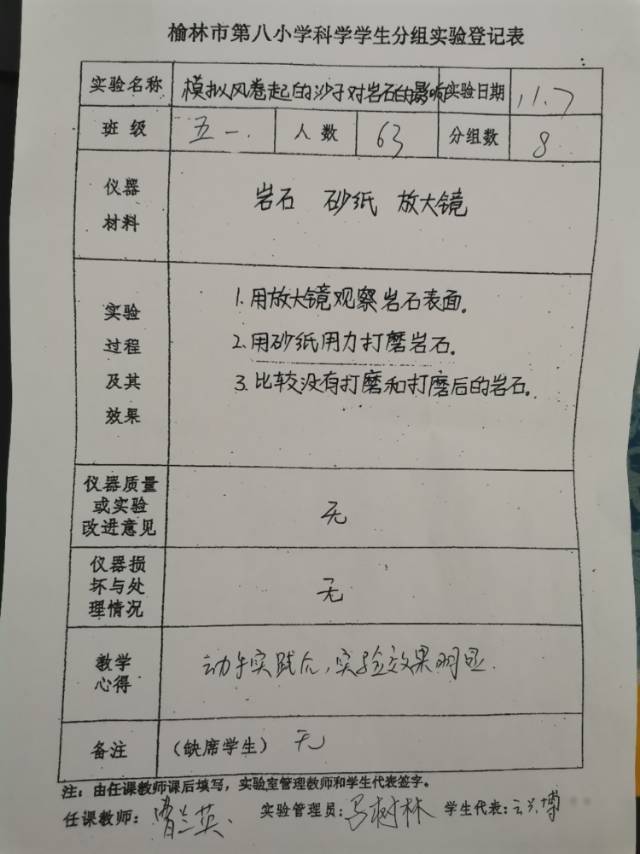 榆林市第八小学科学学生分组实验登记表
实验名称 模拟风卷起的沙子对岩石的影响 实验日期 11.7
班级 五一. 人数 63 分组数 8
仪器
材料
岩石 砂纸 放大镜
实验
过程
及其
效果
1.用放大镜观察岩石表面。
2.用砂纸用力打磨岩石。
3.比较没有打磨和打磨后的岩石。
仪器质量
或实验
改进意见
无
仪器损
坏与处
理情况
无
教学
心得
动手实践后,实验效果明显.
备注 (缺席学生) 无
注:由任课教师课后填写,实验室管理教师和学生代表签字。
任课教师: 兰英 实验管理员:马树林 学生代表: 博